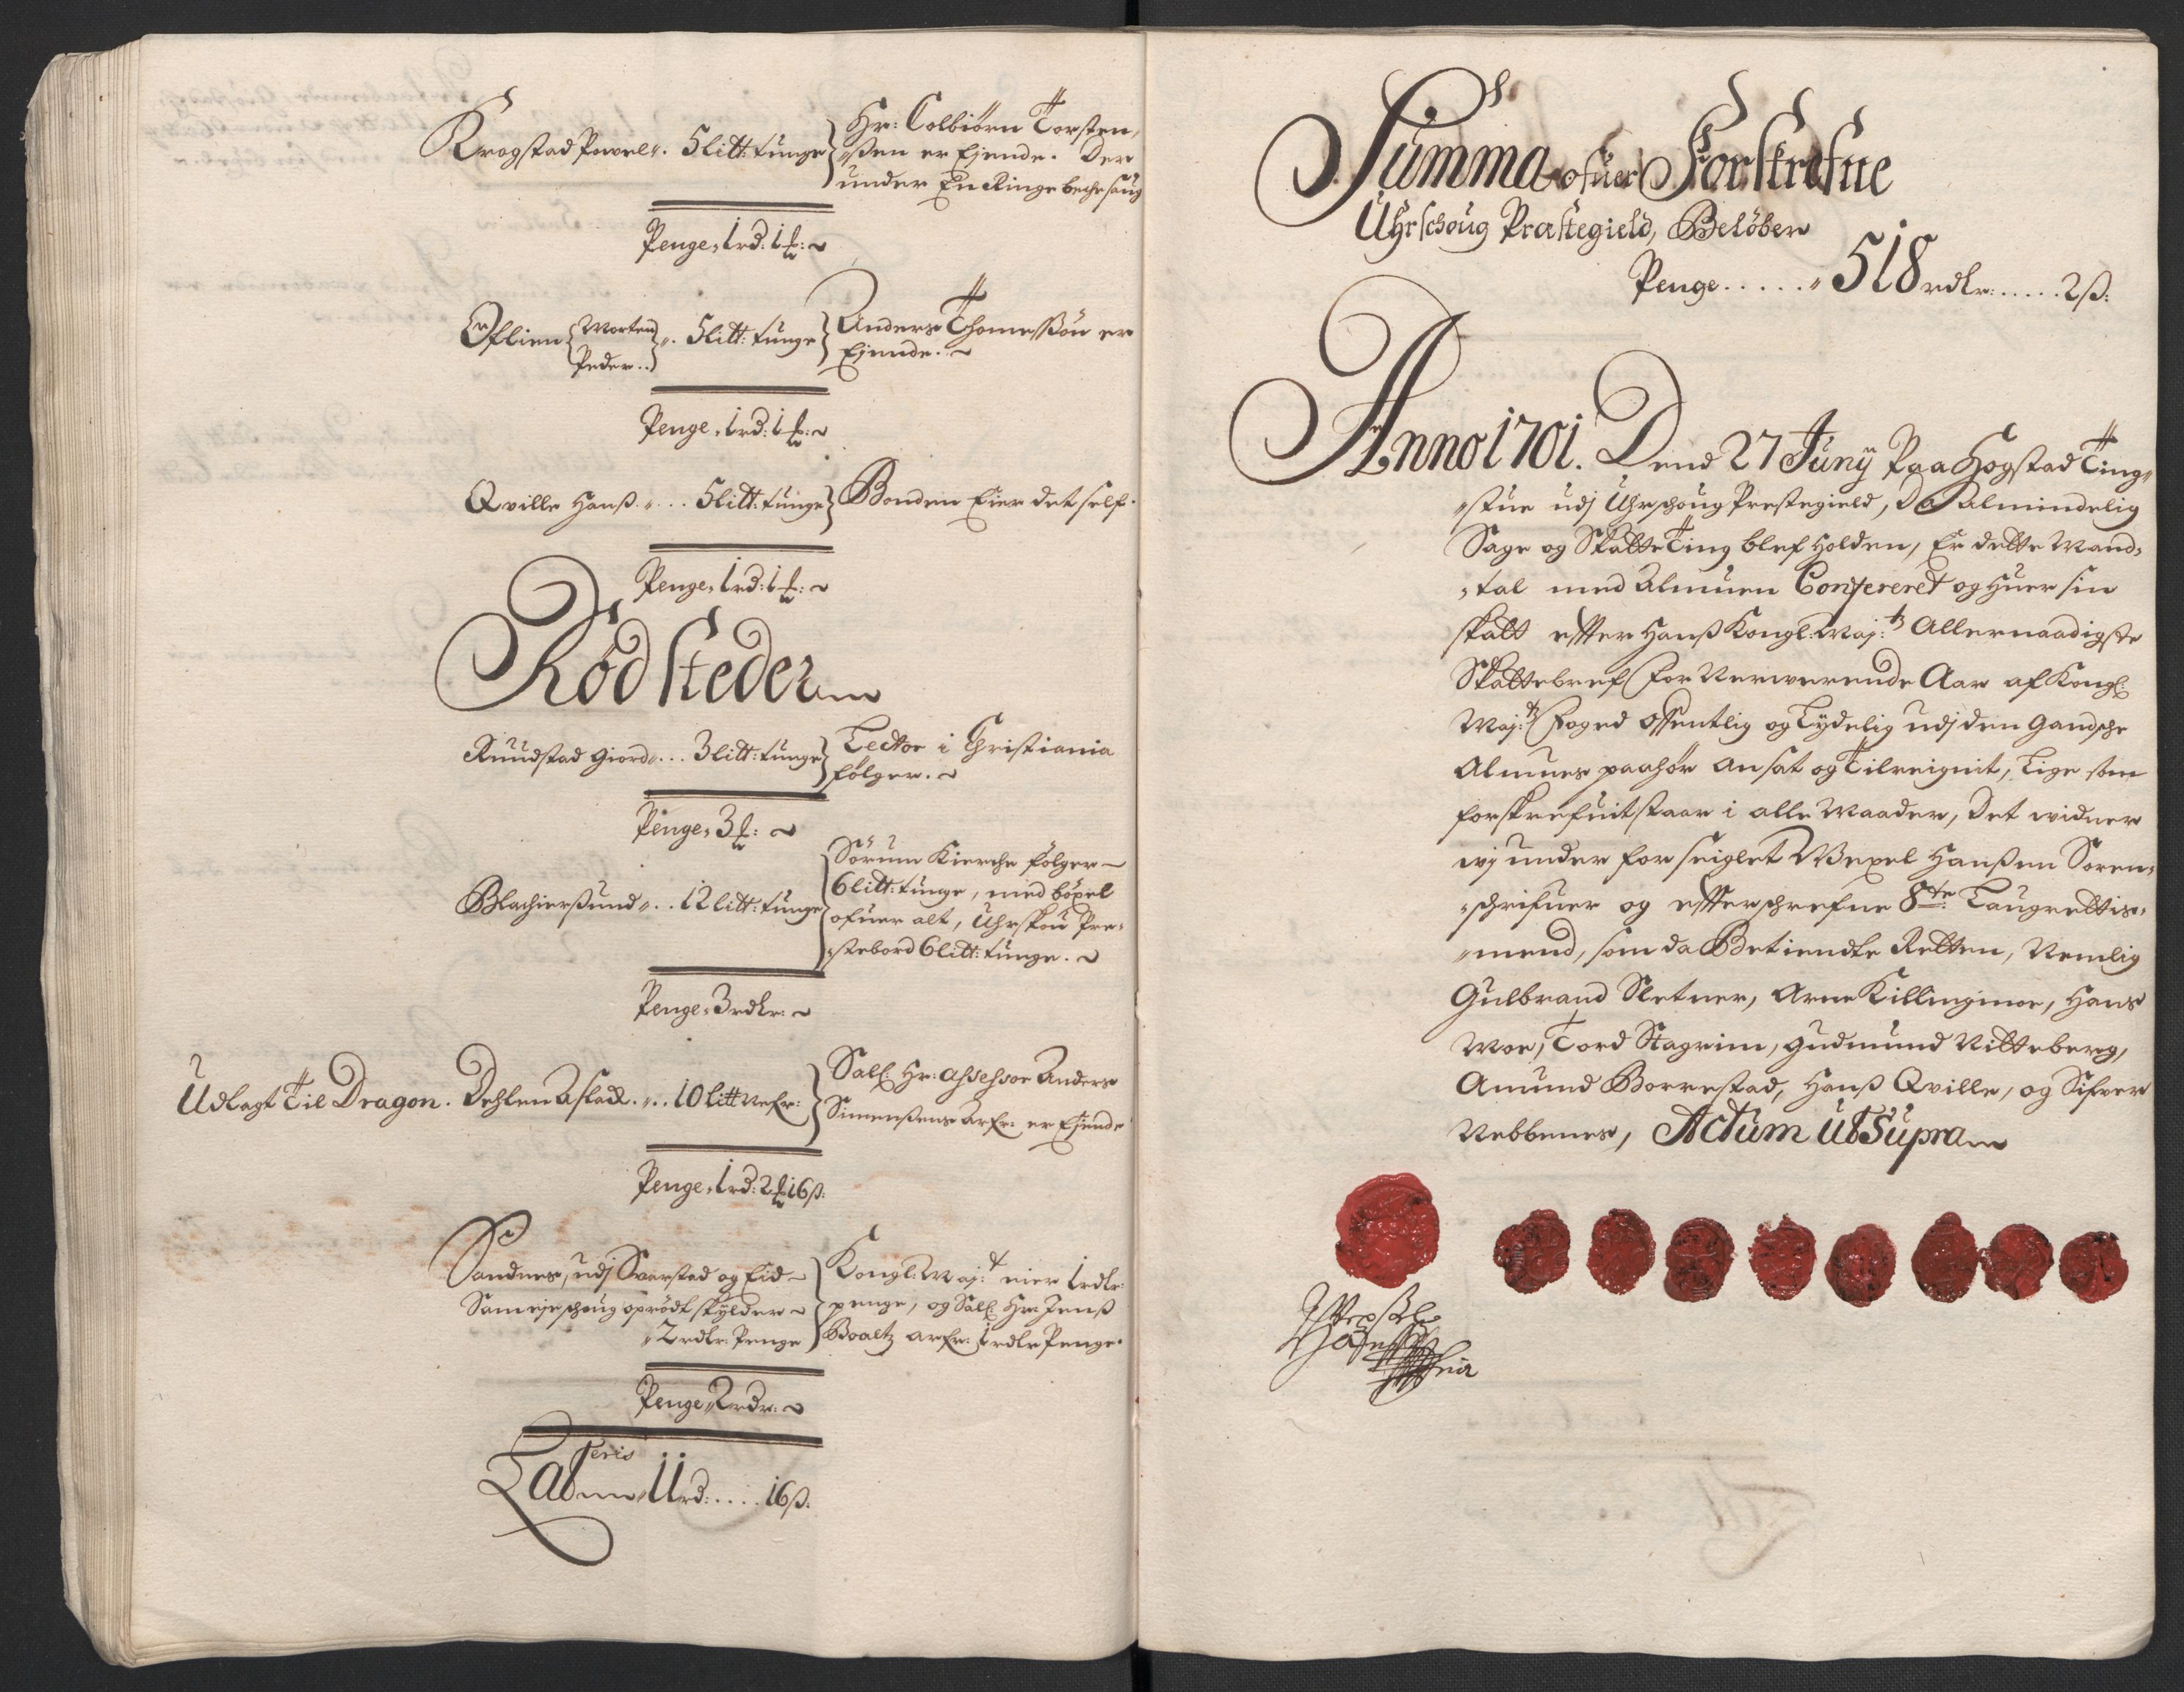 Krogstad Powel 5 litt: tunge
Hr: Colbiörn Torsten,
ßen er Ejende. Der
under En Ringe beche saug
Penge, 1 rd: 1 f:
Oflien Morten
Peder
5 litt: tunge
Anders Thomessön er
Ejende.
Penge, 1 rd: 1 f:
Qville Hanß 5 litt: tunge Bonden Eier det self.
Penge, 1 rd: 1 f:
Röd steder
Knudstad Giord 3 litt: tunge
Lector i Christiania
følger.
Penge, 3 f:
Blachierßund 12 litt: tunge
Sörum Kierche følger
6 litt: tunge, med böxel
ofuer alt, Uhrskou Pre,
stebord 6 litt: tunge.
Penge, 3 rdlr:
Udlagt Til Dragon. Dehlen 10 litt
Sall: Hr: Assessor Anders
Simensens Arfr: er Ejende
Penge, 1 rd: 2 f 16 ß:
Sandnes, udj Svarstad og Eid
Sameje schoug oprödt skylder
2 rdlr: Penge
Kongl: Maj:t eier 1 rdlr
penge, og Sall Hr: Jenß
Boaltz Arfr: 1 rdlr Penge.
Penge, 2 rdr:
Lateris 11 rd: .... 16 ß:
Summa ofuer Forskrefne
Uhrschoug Præstegield, Belöber
Penge ..... 518 rdlr: ..... 2 ß:
Anno 1701. Dend 27 Junij Paa Hogstad Ting,
stue udj Uhrschoug Prestegield, Da Almindelig
Sage og Skatte Ting blef Holden, Er dette Mand,
tal med Almuen Confereret og Huer sin
skatt effter Hanß Kongl: Maj:ts Allernaadigste
Skattebref for Nerwerende Aar af Kongl:
Maj:ts Foged Offentlig og Tydelig udj den Gandsche
Almues paahör ansat og Tilreignit, Lige som
forskrefuit staar i alle Maader, Det widner
wj under forseiglet Wexel Hanßen Soren,
schrifuer og effterschrefne 8te Laugrettis,
mend, som da Betiendte Retten, Nemlig
Gulbrand Sletner, Arne Killingmoe, Hans
Moe, Tord Stagrim, Gudmund Nitteberg,
Amund Borrestad, Hanß Qville, og Sifuer
Nebbenes, Actum Ut Supra